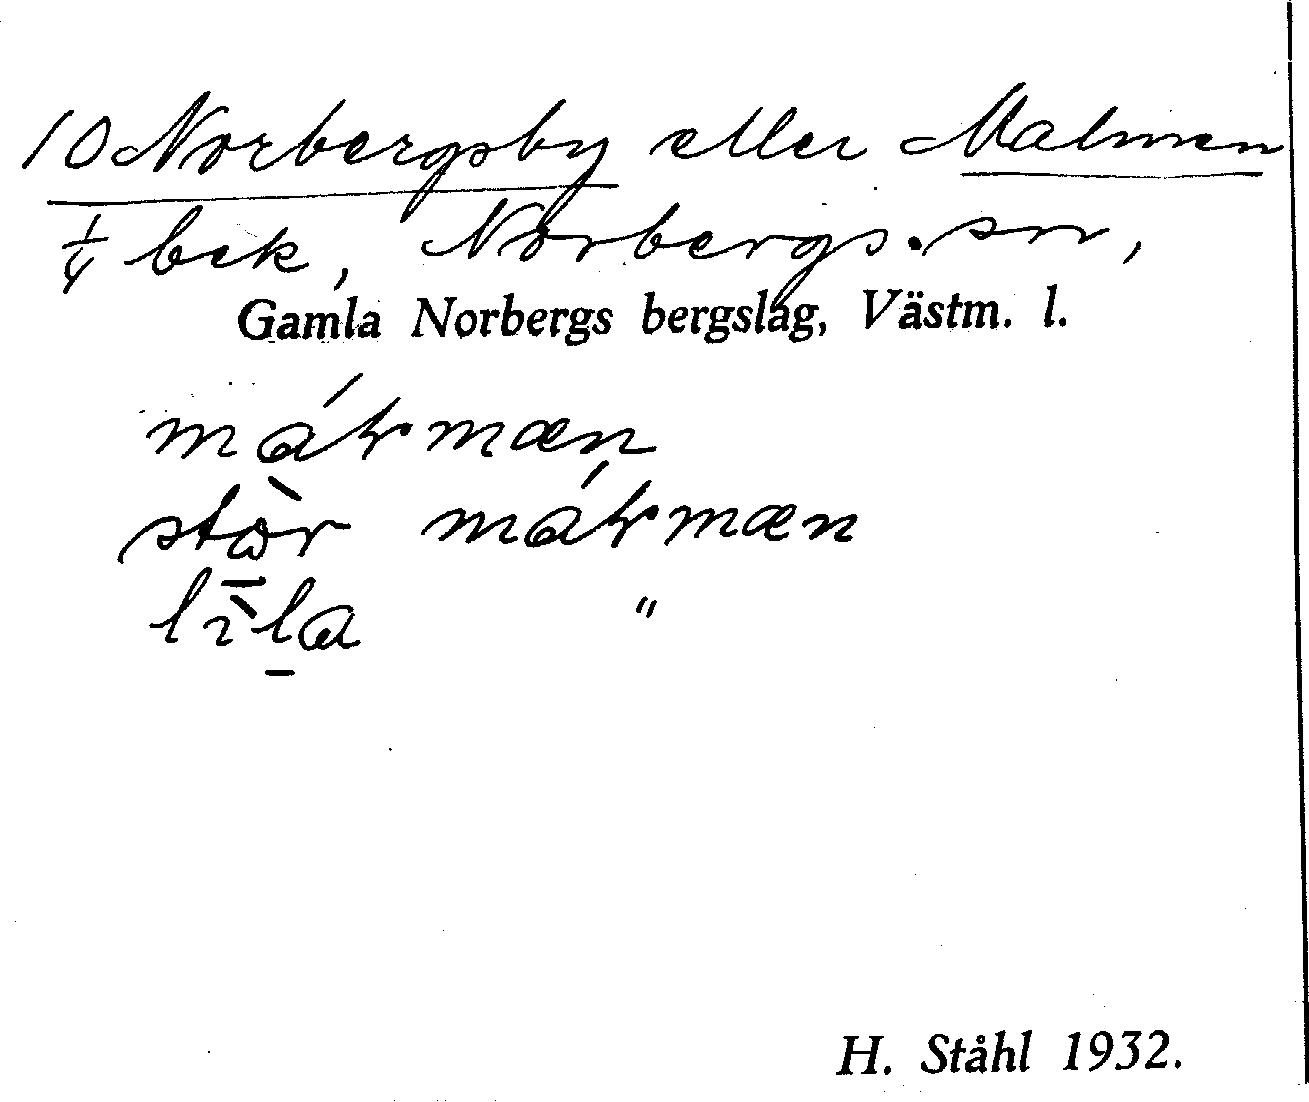 10 Norbergsby eller Malmen
1/4 bek, Norbergs sn,
Gamla Norbergs bergslag, Västm. l.
máɽmæn
stòr máɽmæn
lìla "
H. Ståhl 1932.